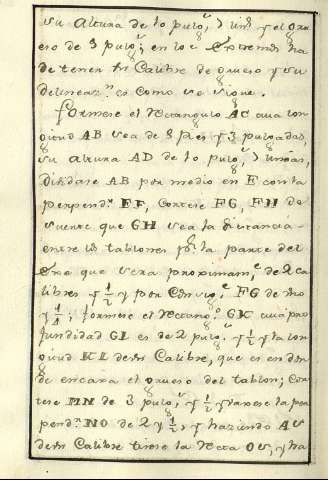 su Altura de 10 pulg.s 7 lin.s y el grue
so de 3 pulg.s; en los Extremos ha
de tener un Calibre de grueso y su
delineaz.n es como se sigue.
Formese el rectangulo AC cuia lon
gitud AB sea de 8 pies y 3 pulgadas,
su altura AD de 10 pulg.s 7 lineas,
Dividase AB por medio en E con la
perpend.r EF, Cortese FG, FH de
suerte que GH sea la distancia
entre los tablones p.r la parte del
Exe que sera proximam.te de 2 Ca
libres y 1/2 y por Consig.te FG de uno
y 1/4; formese el rectang.o GK cuia pro
fundidad GI es de 2 pulg.s y 1/2 y la lon
gitud KI de un Calibre, que es en don
de encaxa el grueso del tablon; Cor
tese MN de 3 pulg.s y 1/2 y tirese la per
pend.r NO de 2 y 1/2, y haziendo
de un Calibre tirese la recta y ha